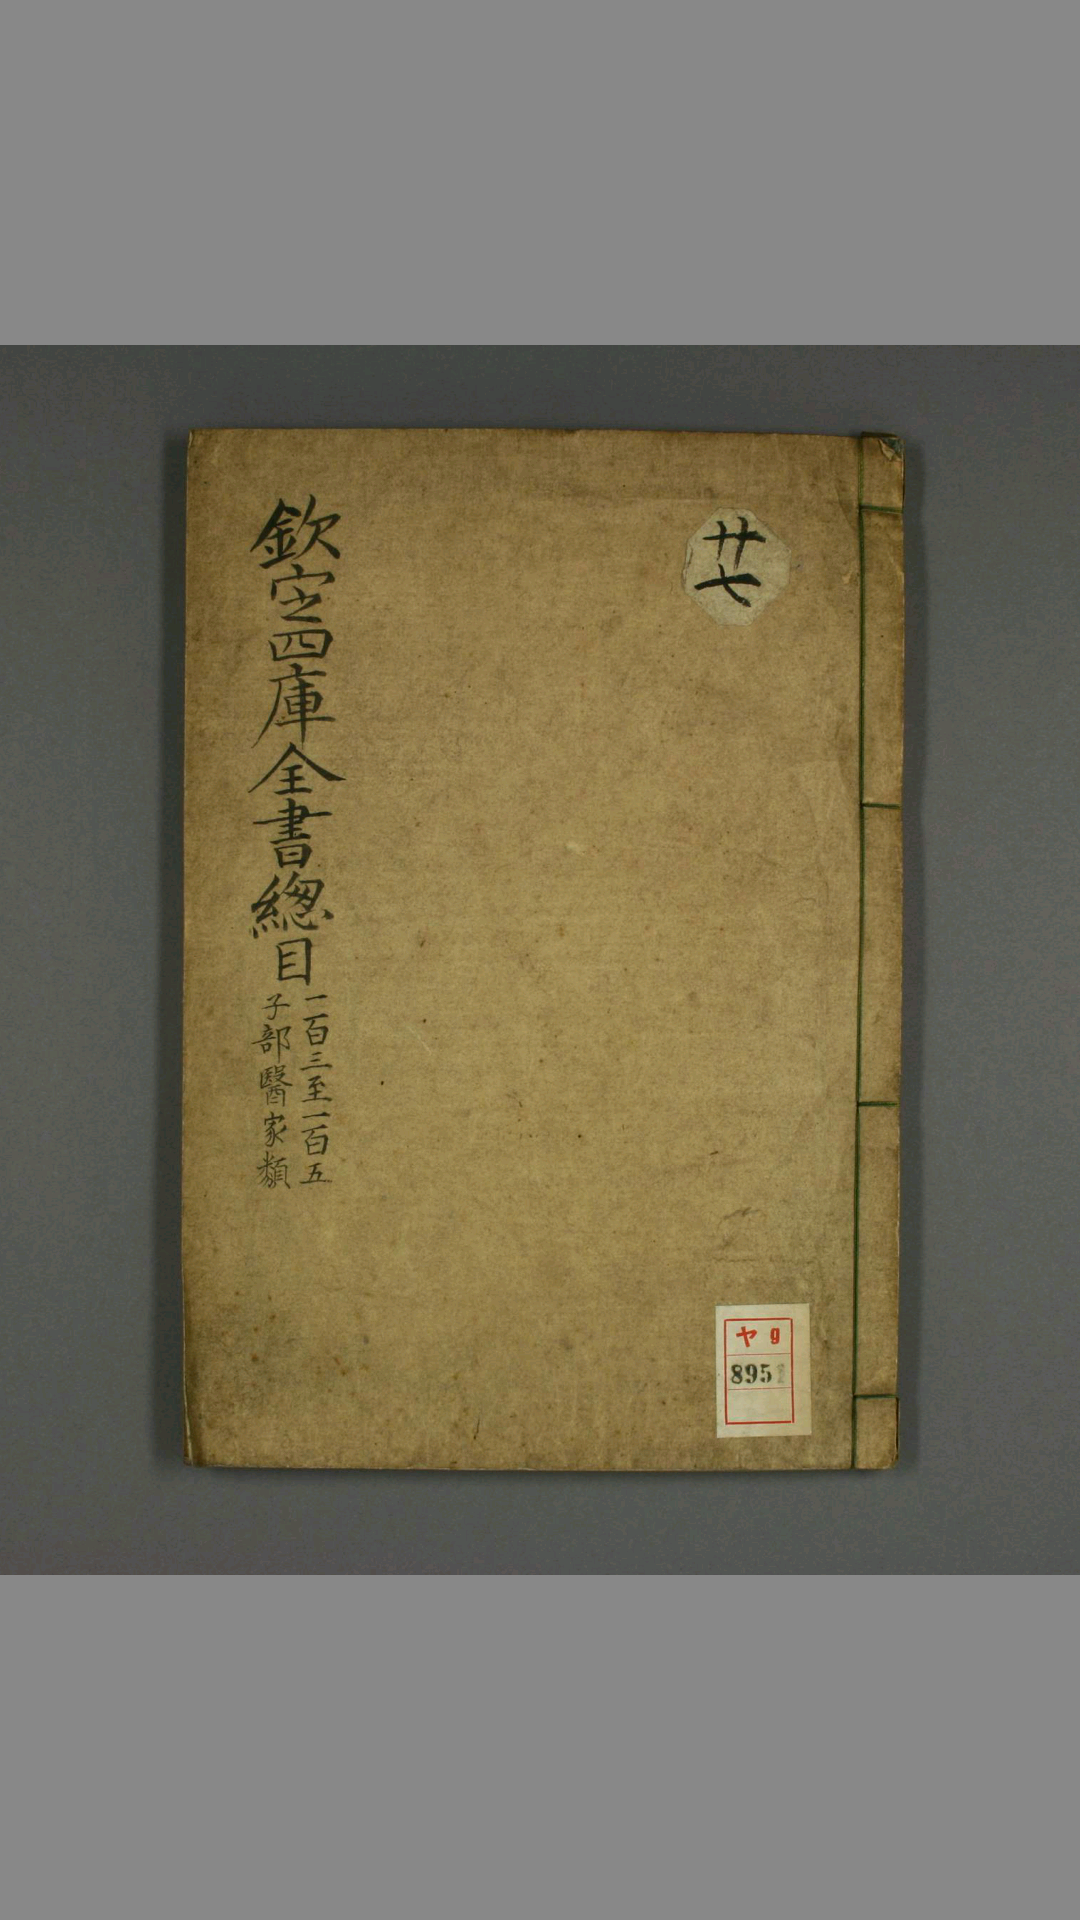 廿七
欽定四庫全書總目
一百三至一百五
子部醫家類
ヤ9
895